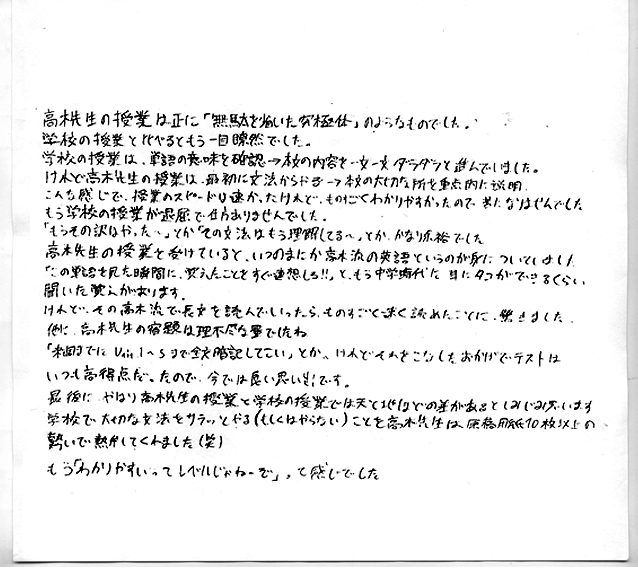 高木先生の授業は正に「無駄を省いた究極体」のようなものでした。
学校の授業と比べるともう一目瞭然でした。
学校の授業は、単語の意味を確認→本文の内容を一文一文ダラダラと進んでいました。
けれど高木先生の授業は、最初に文法からやる→本文の大切な所を重点的に説明、
こんな感じで、授業のスピードは速かったけれど、ものすごくわかりやすかったので苦になりませんでした
もう学校の授業が退屈で仕方ありませんでした。
「もうその訳はやった〜」とか「その文法はもう理解してる〜」とか、かなり余裕でした
高木先生の授業を受けていると、いつのまにか高木流の英語というのが身についていました
「この単語を見た瞬間に、教えたことをすぐ連想しろ!!」と、もう中学時代に耳にタコができるくらい
聞いた覚えがあります。
けれど、その高木流で長文を読んでいったら、ものすごく速く読めたことに、驚きました。
他に、高木先生の宿題は理不尽な量でしたね
「来週までに Unit 1〜5まで全文暗記してこい」とか。けれどそれをこなしたおかげでテストは
いつも高得点だったので、今では良い思い出です。
最後に、やはり高木先生の授業と学校の授業では天と地ほどの差があるとしみじみ思います
学校で大切な文法をサラッとやる(もしくはやらない)ことを高木先生は原稿用紙10枚以上の
勢いで熱弁してくれました(笑)
もう「わかりやすいってレベルじゃねーぞ」、って感じでした